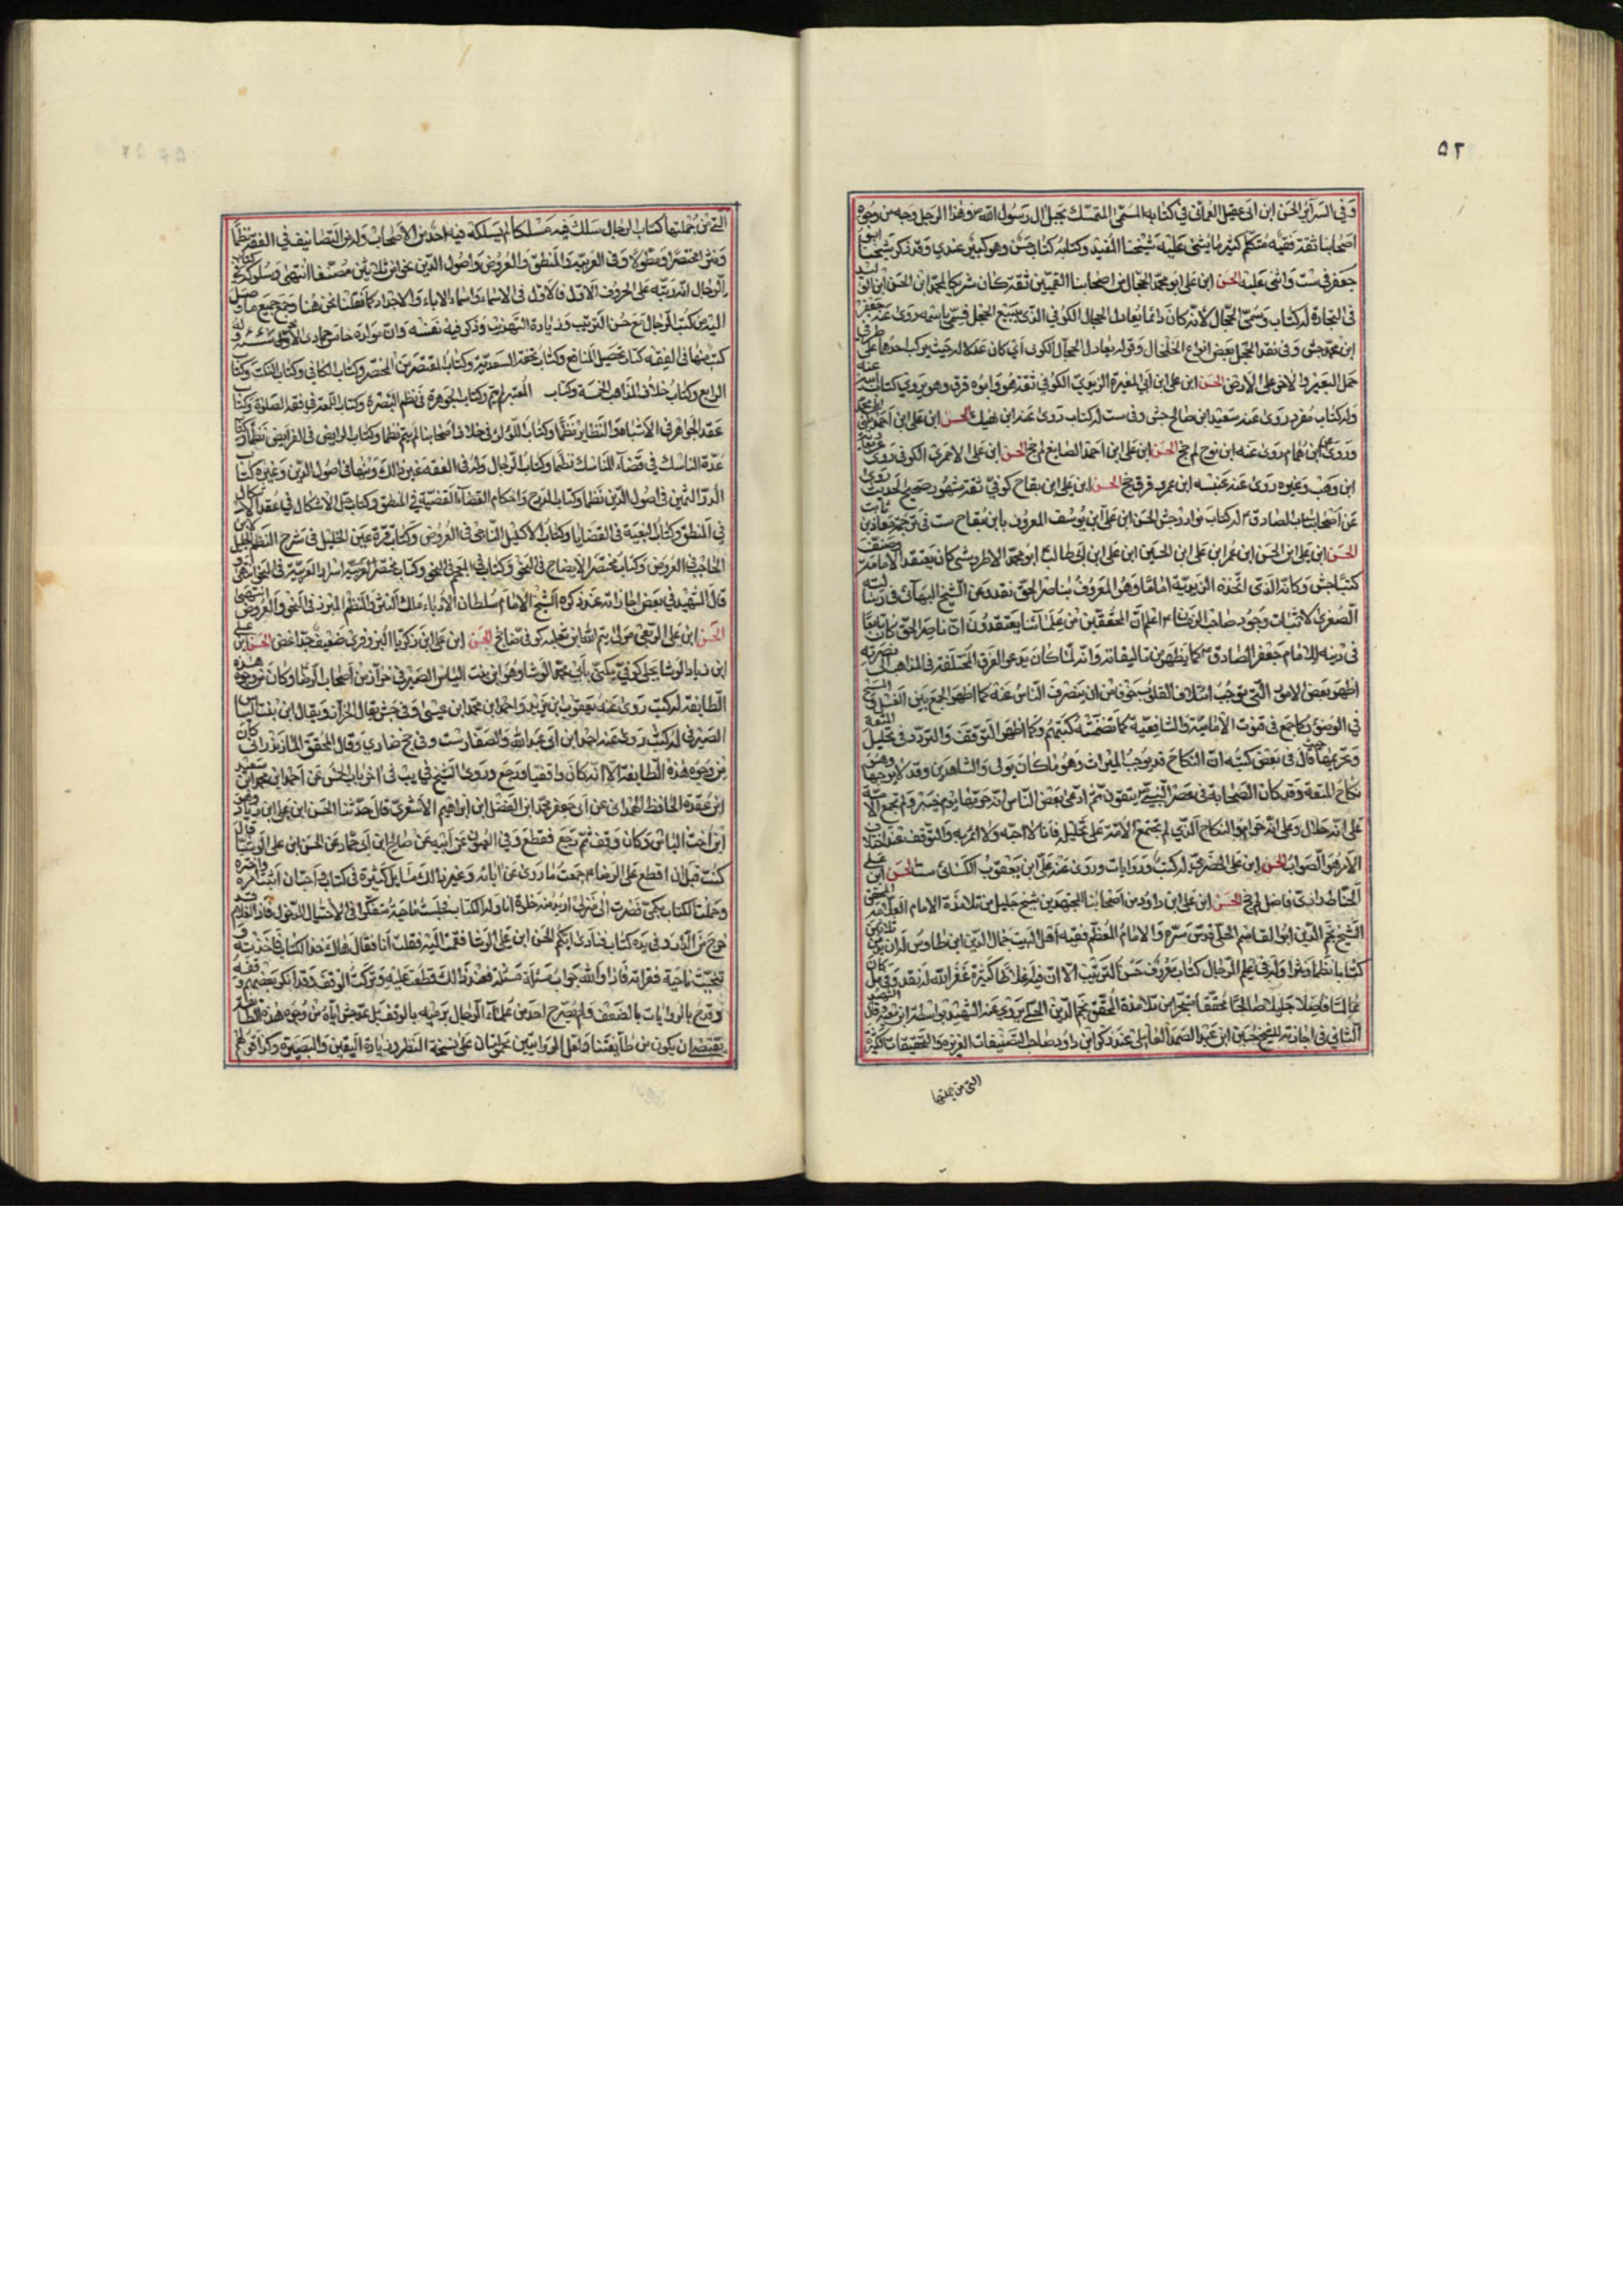 ٥٢
وفى السرآير الحسن ابن ابى عقيل العمانى فى كتابه المسمى المتمسك بحبل آل رسول الله ص وهذا الرجل وجه من وجوه
اصحابنا ثقة فقيه متكلم كثيرا ما يثنى عليه شيخنا المفيد وكتابه كتاب حسن وهو كبير عندى وقد ذكره شيخنا ابو
جعفر فى ست واثنى عليه الحسن ابن على ابو محمد الحجال من اصحابنا القميين ثقة كان شريكا لمحمد ابن الحسن ابن الوليد
فى التجارة له كتاب وسمى الحجال لانه كان دائما يعادل الحجال الكوفى الذى يبيع الحجل فسمى باسمه روى عنه جعفر
ابن محمد جش وفى نقد الحجل بعض انواع الخلخال وقوله يعادل الحجال الكوفى اى كان عدلا له حيث يركب احدهما على طرفى
حمل البعير والاخر على الاخر الحسن ابن على ابن ابى المغيرة الزبيدى الكوفى ثقة هو وابوه روى عن ق وهو يروى كتاب ابيه عنه
وله كتاب مفرد روى عنه سعيد ابن صالح جش وفى ست له كتاب روى عنه ابن نهيك الحسن ابن على ابن احمد يكنى ابا محمد
وروى عن ابن همام روى عنه ابن نوح لم جخ الحسن ابن على ابن احمد الصايغ لم جخ الحسن ابن على الاحمرى الكوفى روى عنه
ابن وهب وغيره روى عنه عنبسه ابن عمرو ق جخ الحسن ابن على ابن بقاح كوفى ثقة مشهور صحيح الحديث روى
عن اصحاب الصادق ع له كتاب نوادر جش الحسن ابن على ابن يوسف المعروف بابن بقاح ست فى ترجمة معاذ بن ثابت
الحسن ابن على ابن الحسن ابن عمر ابن على ابن الحسين ابن على ابن ابى طالب ع ابو محمد الاطروش كان يعتقد الامامة وصنف
كتبا جش وكانه الذى اتخذه الزيدية اماما وهو المعروف بناصر الحق نقد وعن الشيخ البهائى فى رسالته
الصغرى لاثبات وجود صاحب الزمان ع اعلم ان المحققين من علمائنا يعتقدون ان ناصر الحق كان تابعا
فى دينه للامام جعفر الصادق ع كما يظهر من تاليفاته وانه لما كان يدعو الفرق المختلفة فى المذاهب الى نصرته
اظهر بعض الامور التى توجب ائتلاف القلوب خوفا من ان ينصرف الناس عنه كما اظهر الجمع بين الغسل والمسح
فى الوضوء وكما جمع فى قنوت الامامية والشافعية كما تضمنته كتبهم وكما اظهر التوقف والتردد فى تحليل المتعة
وتحريمها حيث قال فى بعض كتبه ان النكاح قد يوجب الميراث وهو ما كان بولى والشاهدين وقد لا يوجبها وهو
نكاح المتعة وقد كان الصحابة فى عصر النبى ص يتمتعون ثم ادعى بعض الناس انه حرمها يوم خيبر ولم تجمع الامة
على انه حلال وعلى انه حرام والنكاح الذى لم تجتمع الامة على تحليله فانا لا احبه ولا آمر به والتوقف عند اختلاف
الامر هو الصواب الحسن ابن على الحضرمى له كتب وروايات وروى عنه على ابن يعقوب الكسائى ست الحسن ابن على
الحناط رازى فاضل لم جخ الحسن ابن على ابن داود من اصحابنا المجتهدين شيخ جليل من تلامذة الامام العلامة المحقق
الشيخ نجم الدين ابو القاسم الحلى قدس سره والامام المعظم فقيه اهل البيت جمال الدين ابن طاوس له ازيد من ثلاثين
كتابا نظما ونثرا وله فى علم الرجال كتاب معروف حسن الترتيب الا ان فيه اغلاطا كثيرة غفر الله له نقد وفى مل كان
عالما فاضلا جليلا صالحا محققا متبحرا من تلامذة المحقق نجم الدين الحلى يروى عنه الشهيد بواسطة ابن معية قال الشهيد
الثانى فى اجازته للشيخ حسين ابن عبد الصمد العاملى عند ذكر ابن داود صاحب التصنيفات الغزيرة والتحقيقات الكثيرة
التى من جملتها
التى من جملتها كتاب الرجال سلك فيه مسلكا لم يسلكه فيه احد من الاصحاب وله من التصانيف فى الفقه نظما
ونثرا مختصرا ومطولا وفى العربية والمنطق والعروض واصول الدين نحو من ثلاثين مصنفا انتهى وسلوكه فى كتاب
الرجال انه رتبه على الحروف الاول فالاول فى الاسماء واسماء الاباء والاجداد كما فعلنا نحن هنا وجمع جميع ما وصل
اليه من كتب الرجال مع حسن الترتيب وزيادة التهذيب وذكر فيه نفسه وان مولده خامس جمادى الاخرى سنة ٦٤٧ وله
كتب منها فى الفقه كتاب تحصيل المنافع وكتاب تحفة السعدية وكتاب المقتصر من المختصر وكتاب الكافى وكتاب النكت وكتاب
الرابع وكتاب خلاف المذاهب الخمسة وكتاب المعتبر لم يتم وكتاب الجوهرة فى نظم التبصرة وكتاب اللمعة فى فقه الصلوة وكتاب
عقد الجواهر فى الاشباه والنظاير نظما وكتاب اللؤلؤ فى خلاف اصحابنا لم يتم نظما وكتاب الرايض فى الفرايض نظما وكتاب
عدة الناسك فى قضاء المناسك نظما وكتاب الرجال وله فى الفقه غير ذلك ومنها فى اصول الدين وغيره كتاب
الدر الثمين فى اصول الدين نظما وكتاب المدرج واحكام القضاء القضية فى المنطق وكتاب حل الاشكال فى عقد الاشكال
فى المنطق وكتاب البغية فى القضايا وكتاب الاكليل التاجى فى العروض وكتاب قرة عين الخليل فى شرح النظم الجليل لابن
الحاجب فى العروض وكتاب مختصر الايضاح فى النحو وكتاب فى المعجم فى النحو وكتاب مختصر اسرار العربية فى النحو انتهى
قال الشهيد فى بعض اجازاته عند ذكره الشيخ الامام سلطان الادباء ملك النثر والنظم المبرز فى النحو والعروض انتهى
الحسن ابن على الربعى مولى تيم الله ابن ثعلبه كوفى ضا جخ الحسن ابن على ابن زكريا البزوفرى ضعيف جدا غض الحسن ابن على
ابن زياد الوشا بجلى كوفى يكنى بابى محمد الوشا وهو ابن بنت الياس الصيرفى خزاز من اصحاب الرضا ع وكان من وجوه هذه
الطايفة له كتب روى عنه يعقوب ابن يزيد واحمد ابن محمد ابن عيسى وفى جش يقال الخزاز ويقال ابن بنت الياس
الصيرفى له كتب روى عنه احمد ابن ابى عبد الله والصفار ست وفى جخ ضا دى وقال المحقق الداماد كان
من وجوه هذه الطايفة الا انه كان واقفيا ورجع وروى الشيخ فى يب فى اخر باب الخمس عن احمد ابن محمد ابن سعيد
ابن عقدة الحافظ الهمدانى عن ابى جعفر محمد ابن الفضل ابن ابراهيم الاشعرى قال حدثنا الحسن ابن على ابن زياد وهو
ابن اخت الياس وكان وقف ثم رجع فقطع وفى العيون عن ابيه عن صالح ابن ابى حماد عن الحسن ابن على الوشا قال
كنت قبل ان اقطع على الرضا ع جمعت ما روى عن ابائه وغير ذلك مسايل كثيرة فى كتاب واحببت ان اثبت امره واخبره
وحملت الكتاب بكمى فصرت الى منزله اريد منه خلوة اناوله الكتاب فجلست ناحية متفكرا فى الاحتيال للدخول فاذا الغلام قد
خرج من الدار وفى يده كتاب فنادى ايكم الحسن ابن على الوشا فقمت اليه فقلت انا فقال هاك هذا الكتاب فاخذته و
تنحيت ناحية فقراته فاذا والله جواب مسئلة مسئلة فعند ذلك قطعت عليه وتركت الوقف
وقدح بالروايات بالضعف ولم يصرح احد من علماء الرجال برميه بالوقف بل عد جش اياه من وجوه هذه الطايفة
يقتضى ان يكون من طايفتنا ولعل الروايتين تحملان على صحة النظر وزيادة اليقين والبصيرة